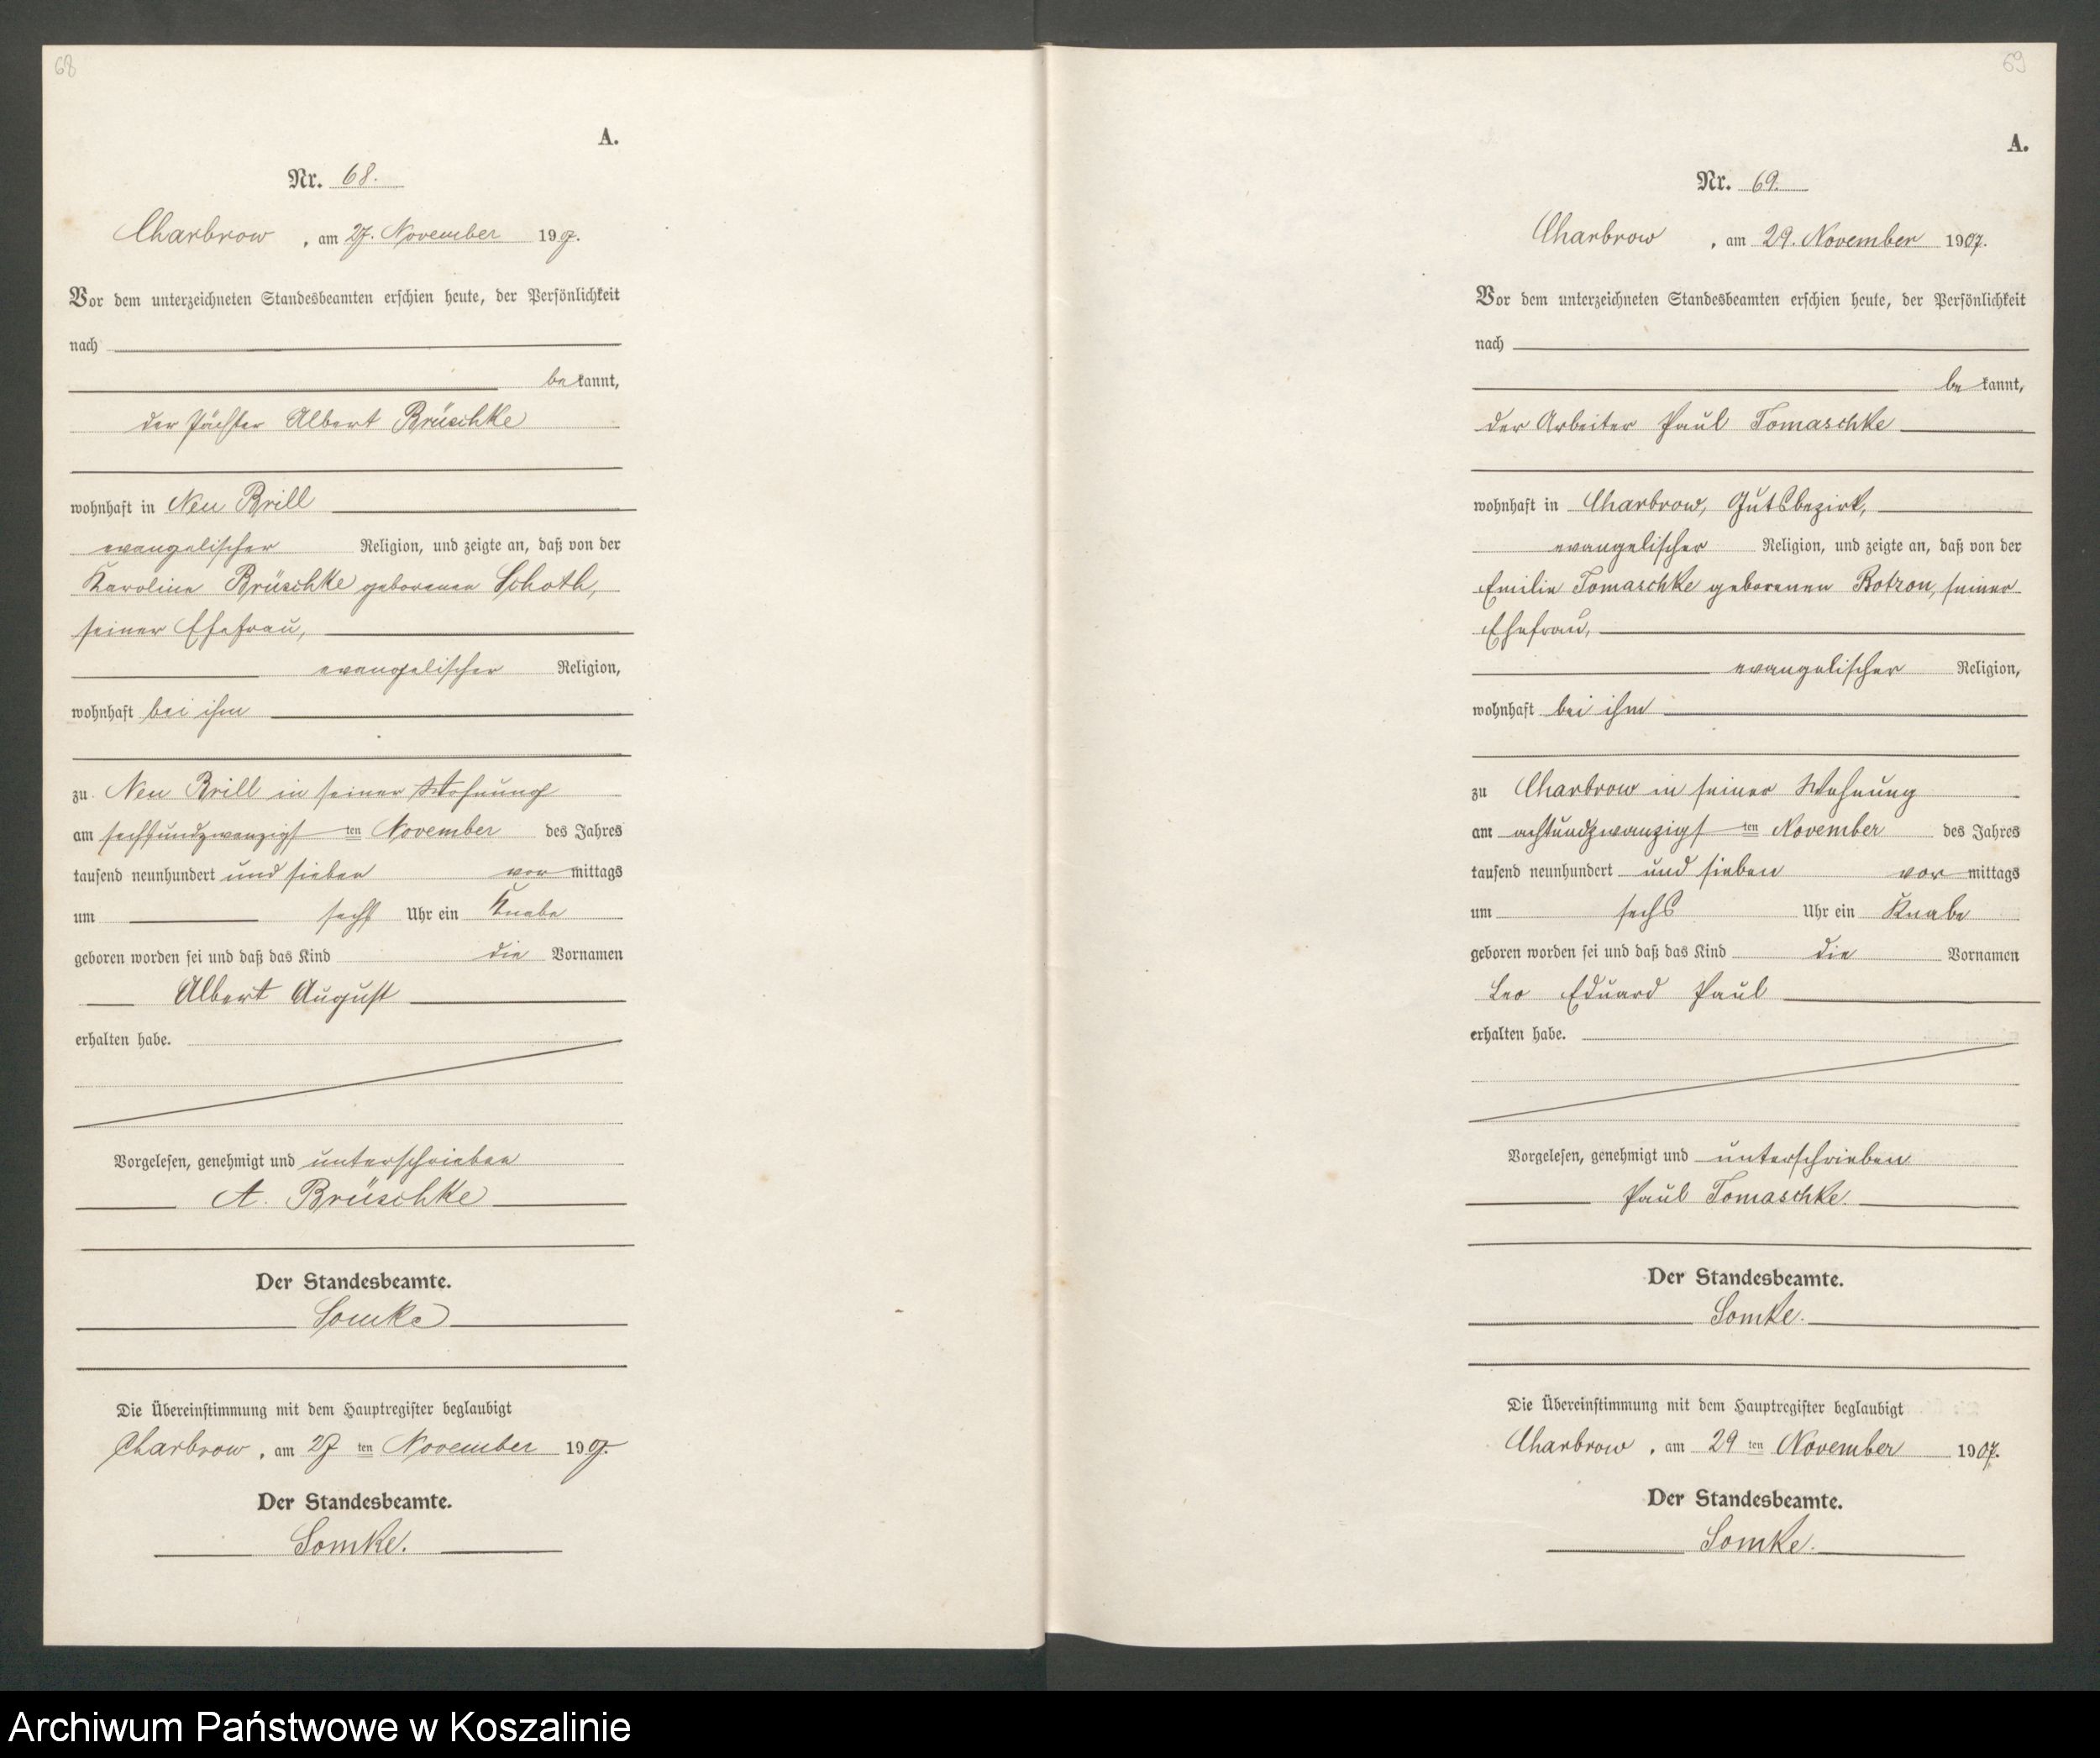 68
A.
Nr. 68.
Charbrow, am 27. November 1907.
Vor dem unterzeichneten Standesbeamten erschien heute, der Persönlichkeit
nach
bekannt,
der Pächter Albert Brüschke
wohnhaft in Neu Brill
evangelischer Religion, und zeigte an, daß von der
Karoline Brüschke geborenen Schoth,
seiner Ehefrau,
evangelischer Religion,
wohnhaft bei ihm
zu Neu Brill in seiner Wohnung
am sechsundzwanzigsten November des Jahres
tausend neunhundert und sieben vormittags
um sechs Uhr ein Knabe
geboren worden sei und daß das Kind die Vornamen
Albert August
erhalten habe.
Vorgelesen, genehmigt und unterschrieben
A. Brüschke
Der Standesbeamte.
Somke
Die Übereinstimmung mit dem Hauptregister beglaubigt
Charbrow, am 27ten November 1907.
Der Standesbeamte.
Somke.
69
A.
Nr. 69.
Charbrow, am 29. November 1907.
Vor dem unterzeichneten Standesbeamten erschien heute, der Persönlichkeit
nach
bekannt,
der Arbeiter Paul Tomaschke
wohnhaft in Charbrow, Gutsbezirk,
evangelischer Religion, und zeigte an, daß von der
Emilie Tomaschke geborenen Botzon, seiner
Ehefrau,
evangelischer Religion,
wohnhaft bei ihm
zu Charbrow in seiner Wohnung
am achtundzwanzigsten November des Jahres
tausend neunhundert und sieben vormittags
um sechs Uhr ein Knabe
geboren worden sei und daß das Kind die Vornamen
Leo Eduard Paul
erhalten habe.
Vorgelesen, genehmigt und unterschrieben
Paul Tomaschke.
Der Standesbeamte.
Somke.
Die Übereinstimmung mit dem Hauptregister beglaubigt
Charbrow, am 29ten November 1907.
Der Standesbeamte.
Somke.
Archiwum Państwowe w Koszalinie